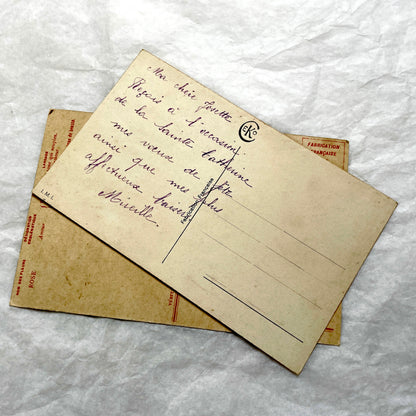 Ma chère Josette
Reçois à l'occasion
de la Sainte Catherine
mes voeux de fête
ainsi que mes plus
affectueux baisers
Mireille.
I.M.L
FABRICATION
FRANÇAISE
NOM DES FLEURS
ROSE
Amour